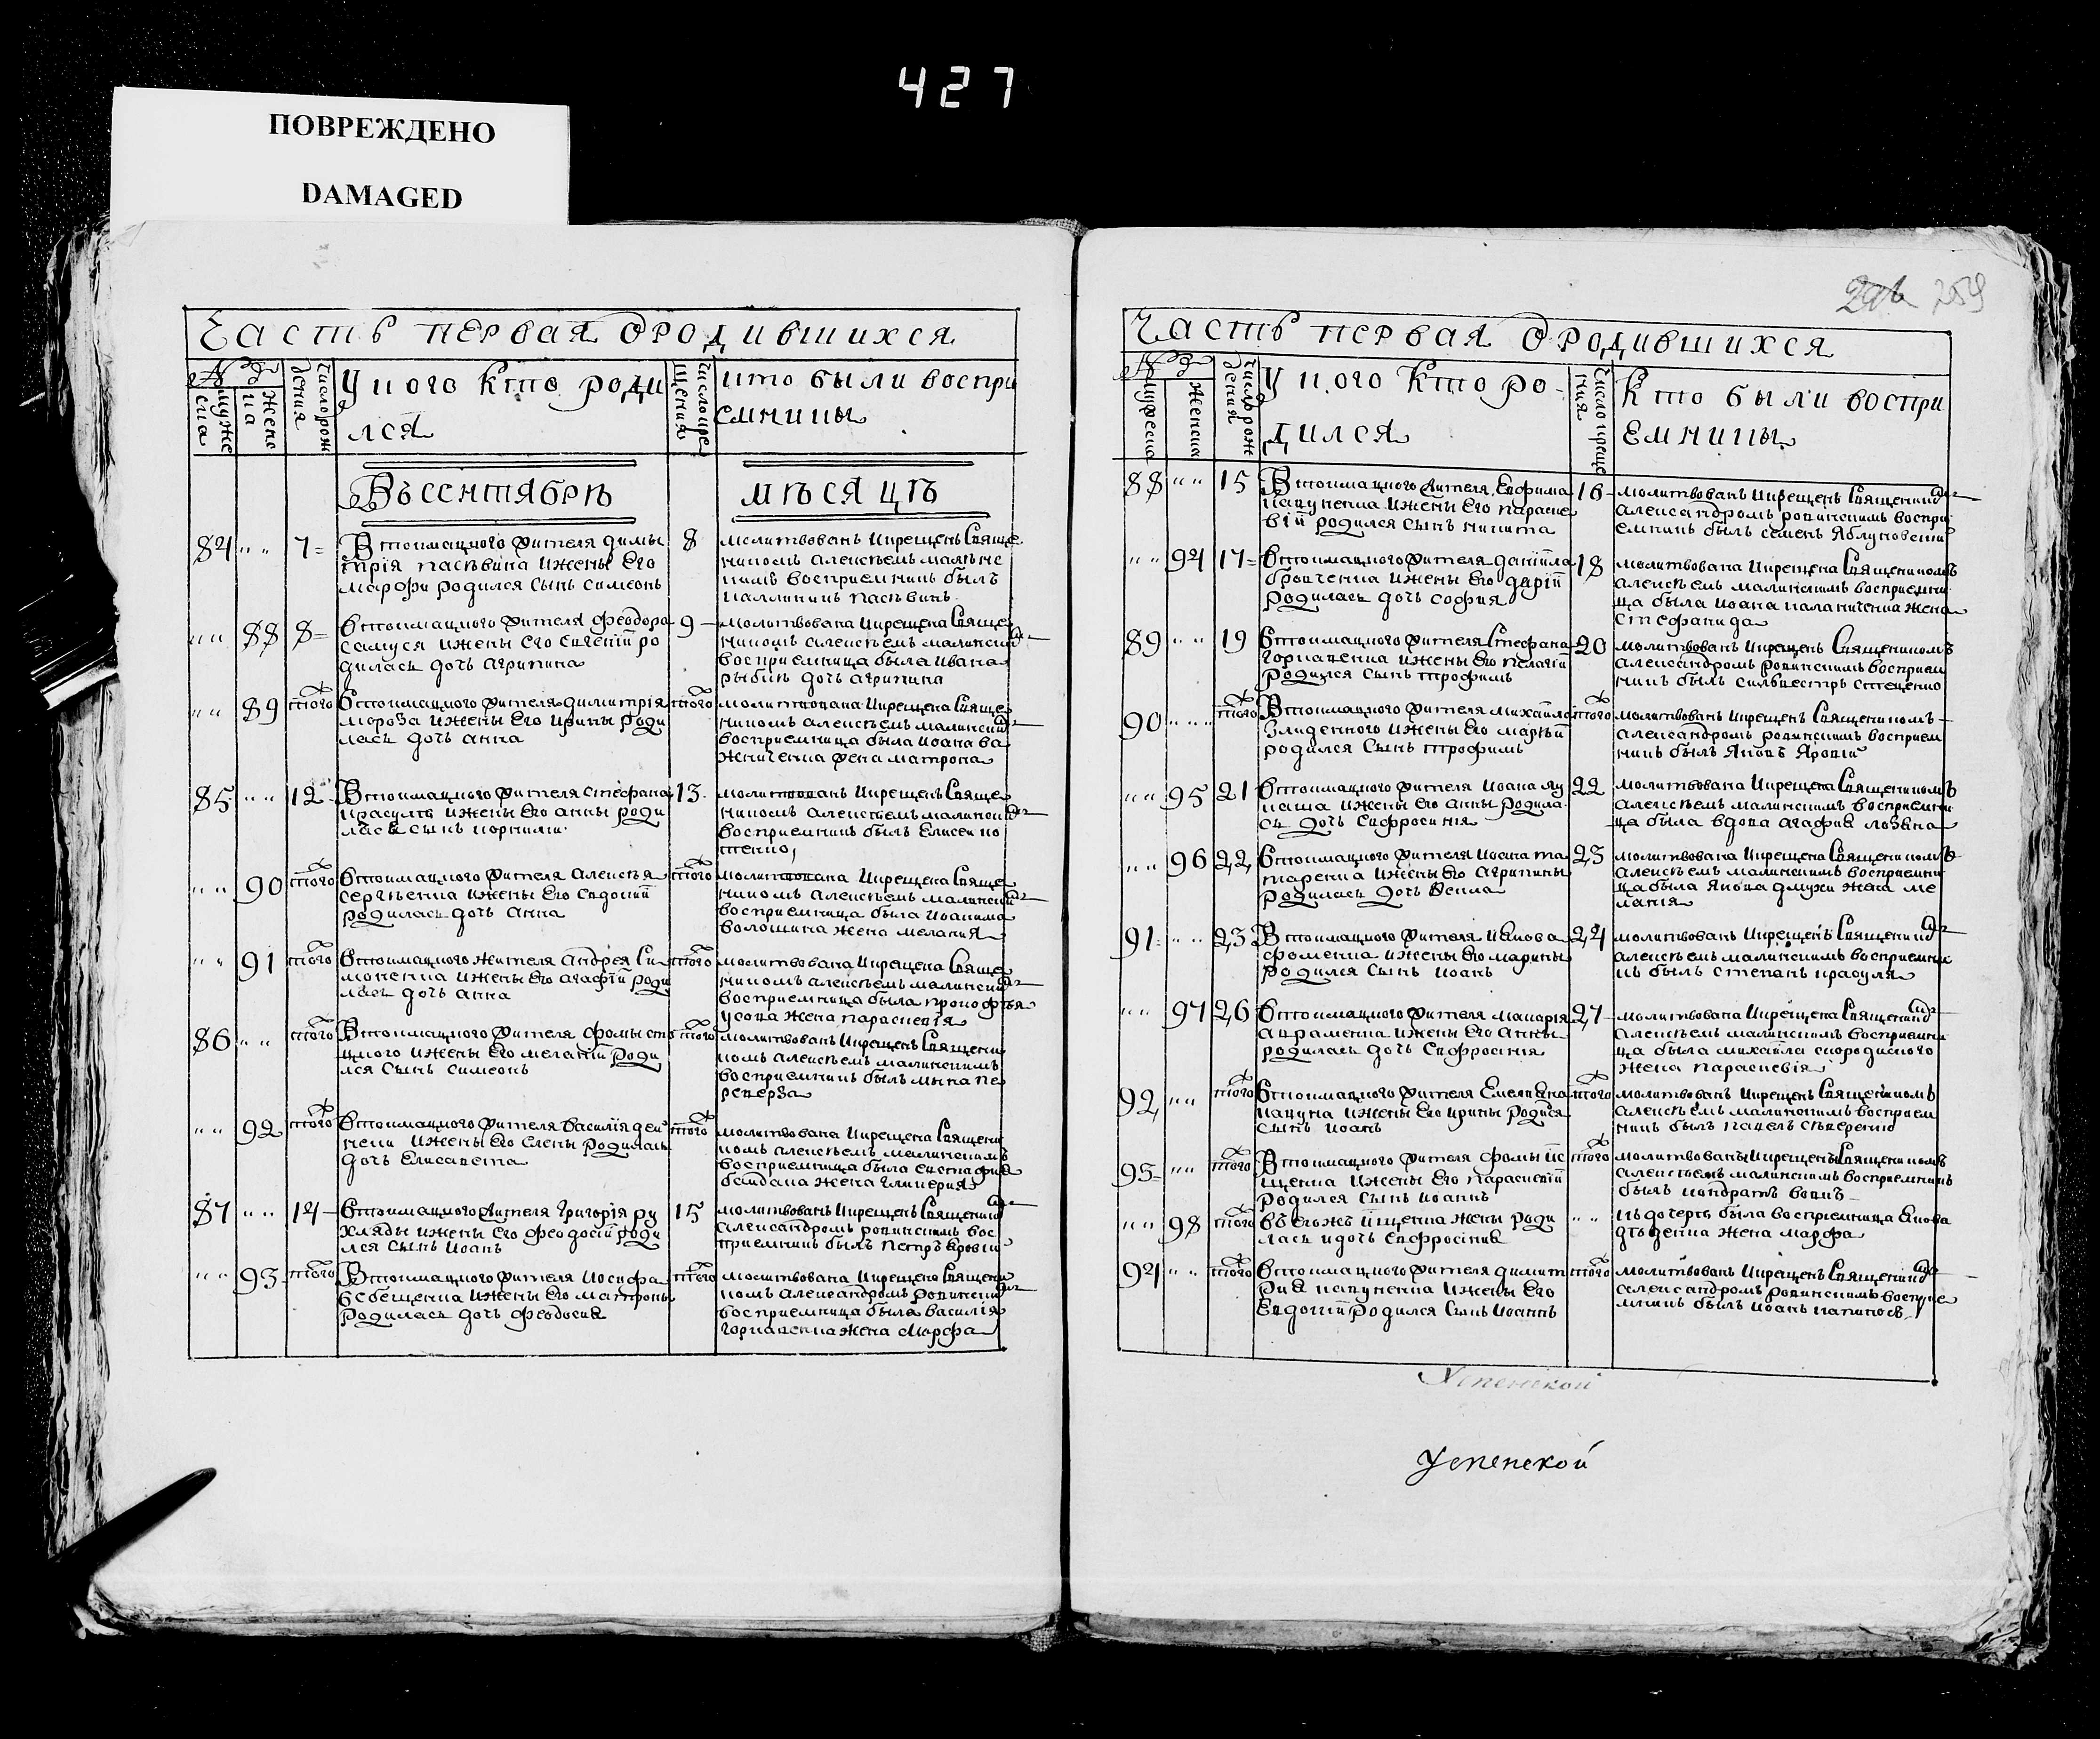 427
ПОВРЕЖДЕНО
DAMAGED
Часть первая о родившихся
муже
ска
женс
ка
число рож
дения
У кого кто роди
лся
число кре
щения
кто были воспри
емники
Въ сентябрѣ мѣсяцѣ
84 " " 7
Втоимацкого жителя дими
трія пасѣвина и жены его
марфи родился сынъ симеонъ
8
молитвованъ и крещенъ свяще
никомъ алексѣемъ малинс
кимъ восприемникъ былъ
каллиникъ пасѣвинъ
" " 88 8
втоимацкого жителя феодора
самуся и жены его евгеніи ро
дилась дочь агрипина
9
молитвована и крещена свяще
никомъ алексѣемъ малински
восприемница была ивана
рыбки дочь агрипина
" " 89 того
втоимацкого жителя димитрія
мороза и жены его ирины роди
лась дочь анна
того
молитвована и крещена свяще
никомъ алексѣемъ малински
восприемница была иоана ва
женченка жена матрона
85 " " 12
Втоимацкого жителя стефана
красулѣ и жены его анны роди
лася сынъ корнилий
13
молитвованъ и крещенъ свяще
никомъ алексѣемъ малински
восприемникъ былъ елисей ко
тенко
" " 90 того
втоимацкого жителя алексѣя
сергѣенка и жены его евдокии
родилась дочь анна
того
молитвована и крещена свяще
никомъ алексѣемъ малински
восприемница была иоакима
волошина жена мелания
" " 91 того
втоимацкого жителя андрея си
моненка и жены его агафіи роди
лась дочь анна
того
молитвована и крещена свяще
никомъ алексѣемъ малински
восприемница была прокофѣя
усова жена параскевія
86 " " того
Втоимацкого жителя фомы сто
цкого и жены его меланіи роди
лся сынъ симеонъ
того
молитвованъ и крещенъ священи
комъ алексѣемъ малинскимъ
восприемникъ былъ мина пе
реверза
" " 92 того
втоимацкого жителя василія дей
неки и жены его елены родилась
дочь елисавета
того
молитвована и крещена священи
комъ алексѣемъ малинскимъ
восприемница была евстафия
байдака жена гликерия
87 " " 14
втоимацкого жителя григорія ру
хляды и жены его феодосіи роди
лся сынъ иоанъ
15
молитвованъ и крещенъ священик
александромъ ровинскимъ вос
приемникъ былъ петръ яровий
" " 93 того
Втоимацкого жителя иосифа
бебещенка и жены его матроны
родилась дочь феодосия
того
молитвована и крещена священи
комъ александромъ ровински
восприемница была василія
горкавенка жена марфа
259
Часть первая о родившихся
мужеска
женска
число рож
дения
У кого кто ро
дился
число креще
ния
Кто были воспри
емники
88 " " 15
Втоимацкого жителя ефима
кацуненка и жены его параске
віи родился сынъ никита
16
молитвованъ и крещенъ священик
александромъ ровинскимъ воспри
емникъ былъ семенъ яблуновский
" " 94 17
втоимацкого жителя даніила
бровченка и жены его даріи
родилась дочь софия
18
молитвована и крещена священикомъ
алексѣемъ малинскимъ восприемни
ца была иоана паламченка жена
стефанида
89 " " 19
втоимацкого жителя стефана
горкавенка и жены его пелагіи
родился сынъ трофимъ
20
молитвованъ и крещенъ священикомъ
александромъ ровинскимъ восприем
никъ былъ сильвестръ стеценко
90 " " того
Втоимацкого жителя михаила
злиденного и жены его маріи
родился сынъ трофимъ
того
молитвованъ и крещенъ священикомъ
александромъ ровинскимъ восприем
никъ былъ яковъ яровій
" " 95 21
втоимацкого жителя иоана лу
каша и жены его анны родила
сь дочь евфросинія
22
молитвована и крещена священикомъ
алексѣемъ малинскимъ восприемни
ца была вдова агафия лозвина
" " 96 22
втоимацкого жителя иоана та
таренка и жены его агрипины
родилась дочь фекла
23
молитвована и крещена священикомъ
алексѣемъ малинскимъ восприемни
ца была якова дмухи жена ме
ланія
91 " " 23
Втоимацкого жителя иякова
фоменка и жены его марины
родился сынъ иоанъ
24
молитвованъ и крещенъ священик
алексѣемъ малинскимъ восприемни
къ былъ степанъ красуля
" " 97 26
втоимацкого жителя макарія
авраменка и жены его анны
родилась дочь евфросінія
27
молитвована и крещена священик
алексѣемъ малинскимъ восприемни
ца была михаила скородиского
жена параскевія
92 " " того
втоимацкого жителя емелияна
кацуна и жены его ирины родился
сынъ иоанъ
того
молитвованъ и крещенъ священикомъ
алексѣемъ малинскимъ восприем
никъ былъ павелъ северенко
95 " " того
Втоимацкого жителя фомы ис
щенка и жены его параскевіи
родился сынъ иоаннъ
того
молитвованъ и крещенъ священикомъ
алексѣемъ малинскимъ восприемникъ
былъ кондратъ вовкъ
" " 98 того
въ егожъ ищенка жены роди
лась и дочь евфросіния
" "
къ дочери была восприемница якова
дѣденка жена марфа
94 " " того
втоимацкого жителя димит
рия кацуненка и жены его
евдокіи родился сынъ иоаннъ
того
молитвованъ и крещенъ священик
александромъ ровинскимъ восприе
мникъ былъ иоанъ
Успенской
Успенской